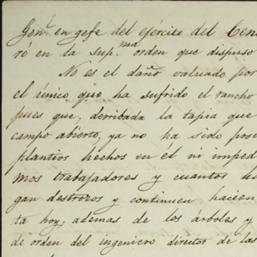 Genl. en gefe del ejército del Cen
ré en la Supma. orden que dispuso
No es el daño valuado por
el único que ha sufrido el rancho
pues que, derribada la tapia que
campo abierto, ya no ha sido pose
plantíos hechos en el ni imped
mos trabajadores y cuantos
gan destrozos y continúen hacien
ta hoy, ademas de los árboles y
de orden del ingeniero director de las